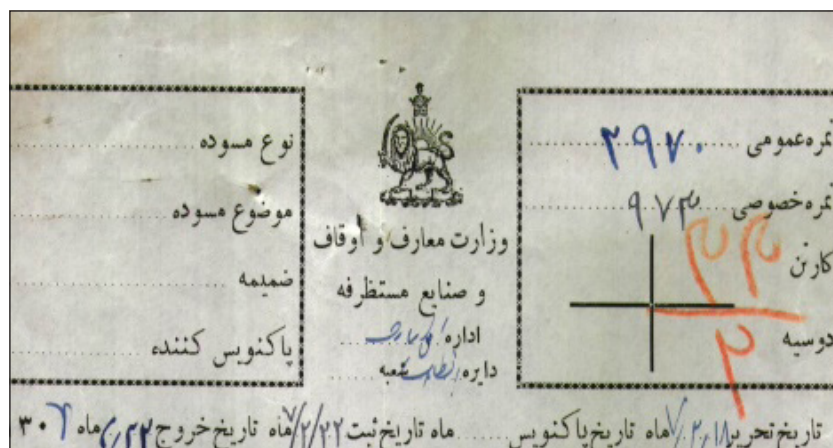 نمره عمومی ۲۹۷۰
نمره خصوصی ۹۷۳
کارتن ۲۲
دوسیه ۲
وزارت معارف و اوقاف
و صنایع مستظرفه
اداره
دایره شعبه
نوع مسوده
موضوع مسوده
ضمیمه
پاکنویس کننده
تاریخ تحریر ماه تاریخ پاکنویس ماه تاریخ ثبت ۷/۲/۲۲ ماه تاریخ خروج ماه ۳۰۷